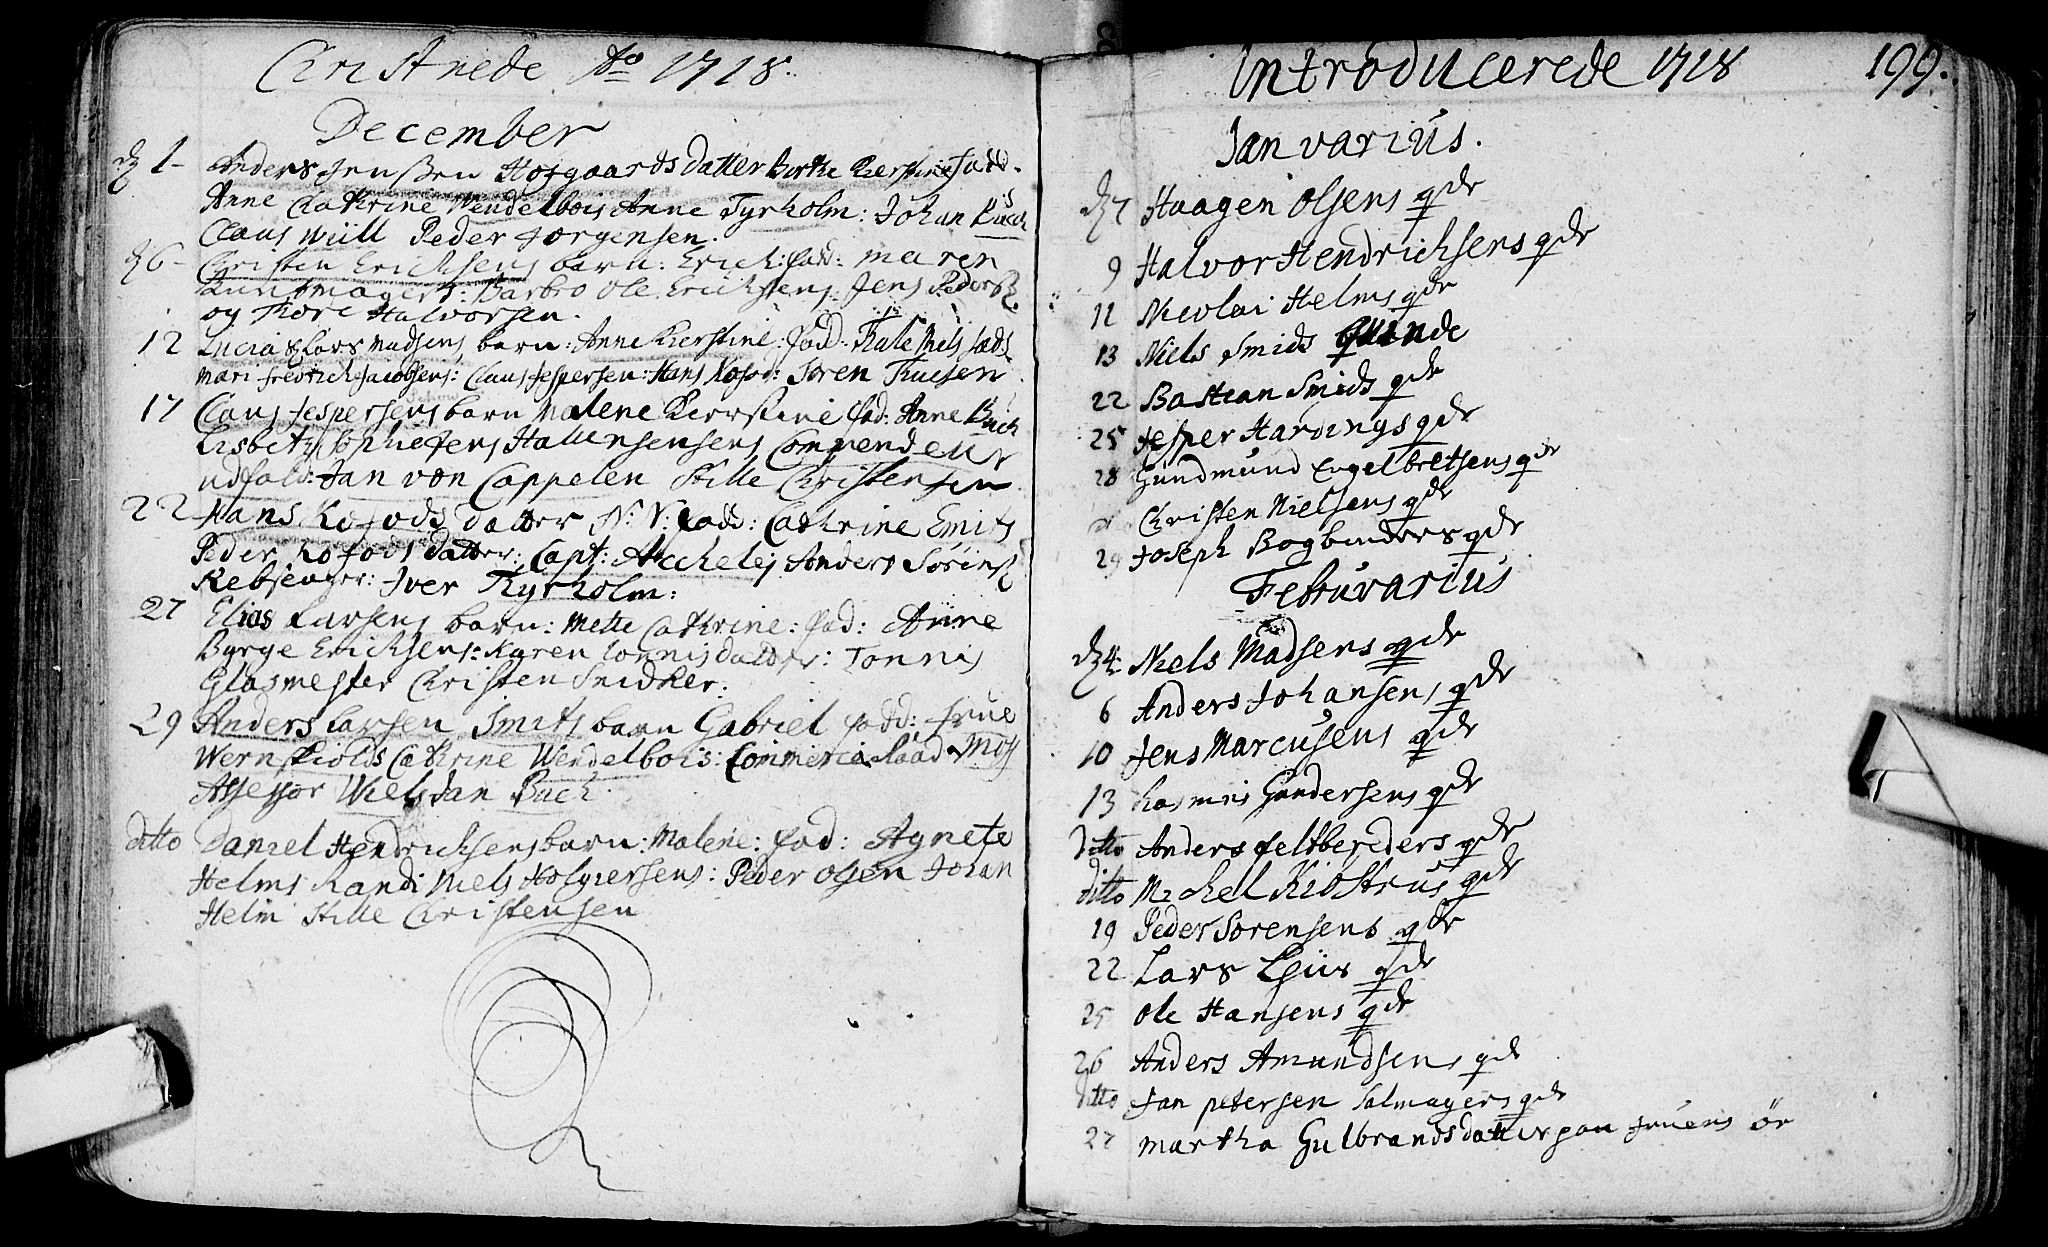 Christnede Ao 1718.
December
d 1 - Anders Jenssen Hofgaards datter birthe Kierstine fadd.
Anne Cathrine Wendelbois Anne Tyrholm: Johan Buch
Claus Will Peder Jørgensen.
d 6 - Christen Erichsens barn: Erich: fad: maren
Buntmagers: Barbro Ole Erichsens: Jens Peders
og Thore Halvorsen.
12 Lucia Lars Madsens barn: Anne Kierstine: fad: Niels
Mari Fredrich Jacobsens: Claus Jespersen: Hans Kofod: Søren Thuesen
17 Claus Jespersens barn Malene Kierstine fad: Anne Buch
Lisbeth Sophie Jens Commendeur
Jan von Cappelen Stille Christensen
22 Hans Kofods datter N: N: fadd: Cathrine Smits
Peder Kofods datter: Capt: Accheley Anders Sørens
Rebslager: Iver Tyrholm:
27 Elias Larsens barn: Mette Cathrine: fad: Anne
Børge Erichsens: Karen Tønnisdatter: Tønnis
Glasmester Christen Snidker:
29 Anders Larsen Smits barn Gabriel fadd: Frue
Wernskiolds Cathrine Wendelbois: Commercie Raad
Assessor Niels Jan Buch.
ditto Daniel Hendrichsens barn: Malene: fad: Agnete
Helms Randi Niels Holgersens: Peder Olsen Johan
Helm Stille Christensen
Introducerede 1718 199.
Janvarius.
d 7 Haagen Olsens qde
9 Halvor Hendrichsens qde
11 Nicolai Helms qde
13 Niels Smids quinde
22 Bastian Smids qde
25 Jesper Hardings qde
28 Gundmund Engelbretsens qde
Christen Nielsens qde
29 Joseph Bogbinders qde
Februvarius
d 4: Niels Madsens qde
6 Anders Johansens qde
10 Jens Marcusens qde
13 Rasmus Gundersens qde
ditto Anders feltbereders qde
ditto Michel qde
19 Peder Sorensens qde
22 Lars qde
25 Ole Hansens qde
26 Anders Amundsens qde
ditto Jan petersen Salmagers qde
27 Martha Gulbrandsdatter paa fruens ör